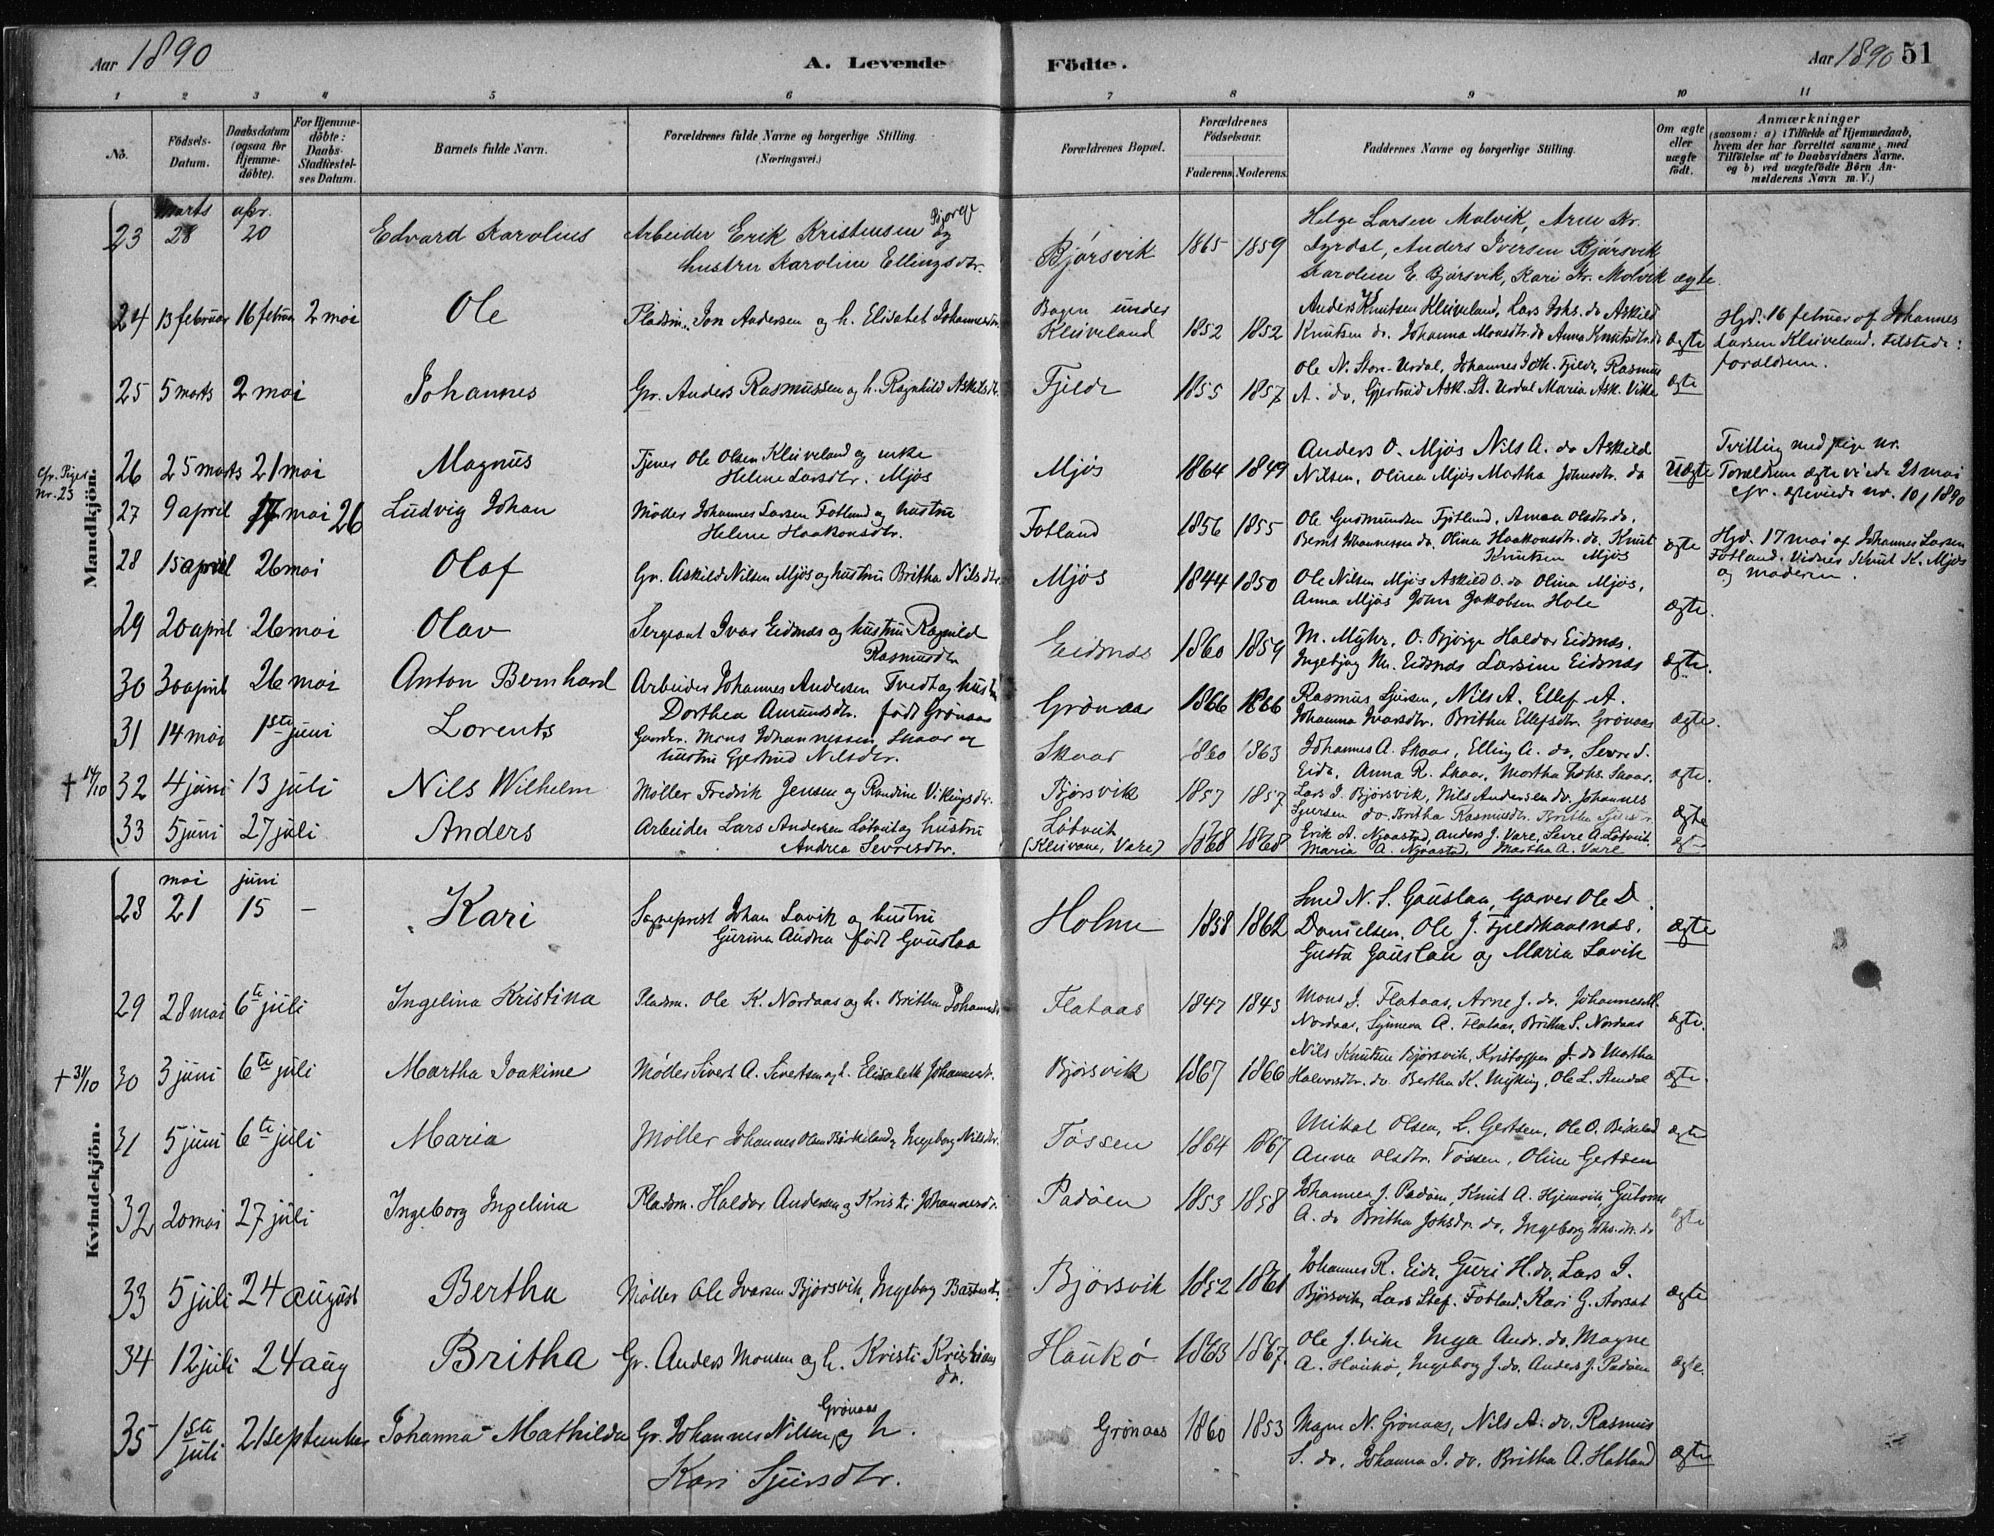 Aar 1890
A. Levende Födte.
Aar 1890 51
1 2 3 4 5 6 7 8 9 10 11
No.
Födsels-Datum.
Daabsdatum (ogsaa for Hjemme-döbte).
For Hjemme-döbte: Daabs-Stadfæstel-ses Datum.
Barnets fulde Navn.
Forældrenes fulde Navne og borgerlige Stilling. (Næringsvei.)
Forældrenes Bopæl.
Forældrenes Födselsaar.
Faderens. Moderens.
Faddernes Navne og borgerlige Stilling.
Om ægte eller uægte födt.
Anmærkninger
(saasom: a) i Tilfælde af Hjemmedaab, hvem der har forrettet samme, med Tilföielse af to Daabsvidners Navne, og b) ved uægtefödte Börn An-melderens Navn m. V.)
Mandkjön.
23 Marts 28 apr. 20 Edvard Karolius Arbeider Erik Kristensen Bjørge og
hustru Karoline Ellingsdtr. Bjørsvik 1865 1859 Helge Larsen Molvik, Arne Kr.
Dyrdal, Anders Iversen Bjørsvik
Karoline E. Bjørsvik, Kari Kr. Molvik ægte.
24 13 februar 16 februar 2 mai Ole Pladsm. Jon Andersen og h. Elisabet Johannesdtr. Bagen under
Kleiveland 1852 1852 Anders Knutsen Kleiveland, Lars Johs. do Askild
Knutsen do. Johanna Monsdtr. do Anna Knutsdtr. do ægte Hjd. 16 februar af Johannes
Larsen Kleiveland. tilstede:
forældrene.
25 5 marts 2 mai Johannes Gr. Anders Rasmussen og h. Ragnhild Askilsdtr. Fjelde 1855 1857 Ole N. Store-Urdal, Johannes Joh. Fjelde, Rasmus
A. do, Gjertrud Ask. St. Urdal Maria Ask. Vike ægte
cfr. Piger nr. 23
26 25 marts 21 mai Magnus Tjener Ole Olsen Kleiveland og enke
Helene Larsdtr. Mjøs Mjøs 1864 1849 Anders O. Mjøs Nils A. do Askild
Nilsen, Olina Mjøs Martha Johnsdtr. do Uægte Tvilling med pige nr.
Forældrene ægteviede 21 mai
cfr. ægteviede nr. 10, 1890
27 9 april 17 mai 26 Ludvig Johan Møller Johannes Larsen Fotland og hustru
Helene Haakonsdtr. Fotland 1856 1855 Ole Gudmundsen Fotland, Anna Olsdtr. do.
Bernt Johannessen do, Olina Haakonsdtr. do. Knut
Knutsen Mjøs ægte Hjd. 17 mai af Johannes Larsen
Fotland. Vidner Knut K. Mjøs
og moderen.
28 15 april 26 mai Olaf Gr. Askild Nilsen Mjøs og hustru Britha Nilsdtr. Mjøs 1844 1850 Ole Nilsen Mjøs Askild O. do Olina Mjøs,
Anna Mjøs John Jakobsen Hole ægte.
29 20 april 26 mai Olav Sergeant Ivar Eidsnæs og hustru Ragnild
Rasmusdtr Eidsnæs 1860 1859 M. Myhr, O. Bjørge Haldor Eidsnæs.
Ingebjøg M. Eidsnæs Larsine Eidsnæs ægte.
30 30 april 26 mai Anton Bernhard Arbeider Johannes Andersen Tvedt og hustru
Dorthea Amundsdtr. født Grønaas Grønaas 1866 1866 Rasmus Sjursen, Nils A. Ellef A.
Johanna Ivarsdtr. Britha Ellefsdtr. Grønaas ægte.
31 14 mai 1ste juni Lorents Gaardbr. Mons Johannessen Skaar og
hustru Gjertrud Nilsdtr. Skaar 1860 1863 Johannes A. Skaar, Elling A. do, Sevre S.
Eide, Anna R. Skaar, Martha Johs. Skaar. ægte.
† 14/10 32 4 juni 13 juli Nils Wilhelm Møller Fredrik Jensen og Randine Vikingsdtr. Bjørsvik 1857 1857 Lars I. Bjørsvik, Nils Andersen do, Johannes
Sjursen do. Britha Rasmusdtr. Britha Sjursdtr. ægte
33 5 juni 27 juli Anders Arbeider Lars Andersen Løtveit og hustru
Andrea Sevresdtr. Løtveit
(Kleivane, Vare) 1868 1868 Erik A. Njaastad, Anders J. Vare, Sevre A. Løtveit
Maria A. Njaastad, Martha A. Vare
Kvindekjön.
28 mai 21 juni 15 – Kari Sogneprest Johan Lavik og hustru
Gurina Andrea født Gauslaa Holme 1858 1862 Smed N. S. Gauslaa, Garver Ole D.
Danielsen, Ole J. Fjeldskaalnæs,
Gusta Gauslaa og Maria Lavik ægte
29 28 mai 6te juli Ingelina Kristina Pladsm. Ole K. Nordaas og h. Britha Johannesdtr Flataas 1847 1843 Mons J. Flataas, Arne J. do. Johannes M.
Nordaas, Synneva A. Flataas, Britha S. Nordaas ægte.
† 31/10 30 3 juni 6te juli Martha Joakime Møller Sivert A. Sivertsen og h. Elisabeth Johannesdtr. Bjørsvik 1867 1866 Nils Knutsen Bjørsvik, Kristoffer J. do Martha
Halvorsdtr. do Bertha K. Myking, Ole L. Stendal ægte
31 5 juni 6te juli Maria Møller Johannes Olsen Birkeland og Ingeborg Nilsdtr. Tossen 1864 1867 Mikal Olsen, L. Gertsen, Ole O. Birkeland
Anna Olsdtr. Tossen, Oline Gertsen ægte
32 20 mai 27 juli Ingeborg Ingelina Pladsm. Haldor Andersen og Kristi Johannesdtr. Padøen 1853 1858 Johannes J. Padøen, Knut A. Hjemvik Guttorm
A. do Britha Johsdtr. do, Ingeborg Johs.dtr. do ægte
33 5 juli 24 august Bertha Møller Ole Ivarsen Bjørsvik, Ingeborg Bastesdtr. Bjørsvik 1852 1861 Johannes R. Eide, Guri H. do, Lars I.
Bjørsvik, Lars Stef. Fotland, Kari G. Aarsæt ægte
34 12 juli 24 aug Britha Gr. Anders Monsen og h. Kristi Kristians
dr. Haukø 1863 1867. Ole J. Vike Inga Andr. do, Magne
A. Haukø, Ingeborg J. do, Anders J. Padøen ægte.
35 1ste juli 21 september Johanna Mathilda Gr. Johannes Nilsen Grønaas og h.
Kari Sjursdtr. Grønaas 1860 1853 Magne N. Grønaas, Nils A. do. Rasmus
S. do, Johanna I. do. Britha A. Hatland ægte